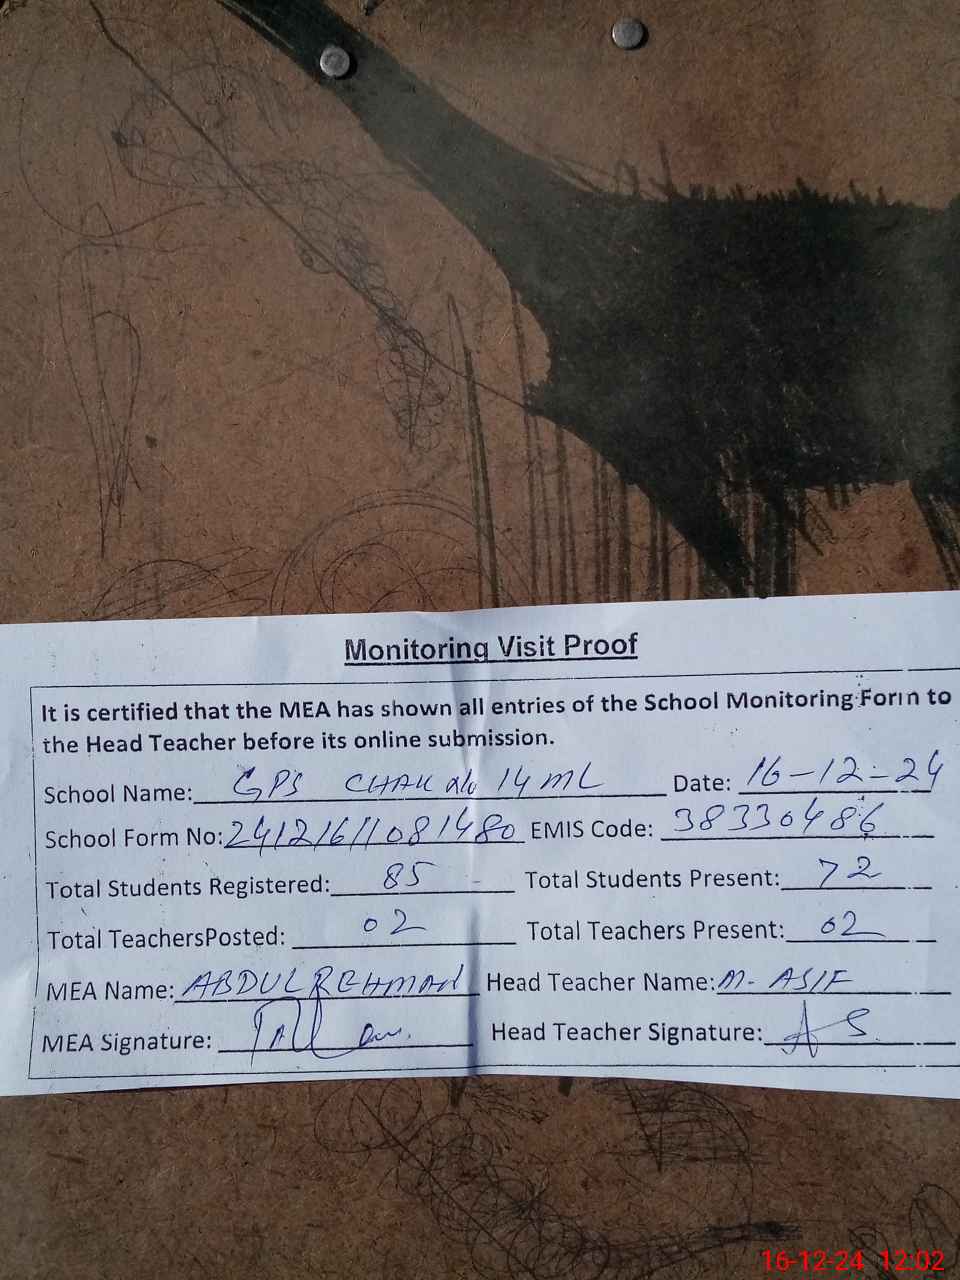 Monitoring Visit Proof
It is certified that the MEA has shown all entries of the School Monitoring Form to
the Head Teacher before its online submission.
School Name: GPS CHAK No 14 ML Date: 16-12-24
School Form No: 24121611081480 EMIS Code: 38330486
Total Students Registered: 85 Total Students Present: 72
Total TeachersPosted: 02 Total Teachers Present: 02
MEA Name: ABDUL REHMAN Head Teacher Name: M. ASIF
MEA Signature: Head Teacher Signature: AS
16-12-24 12:02